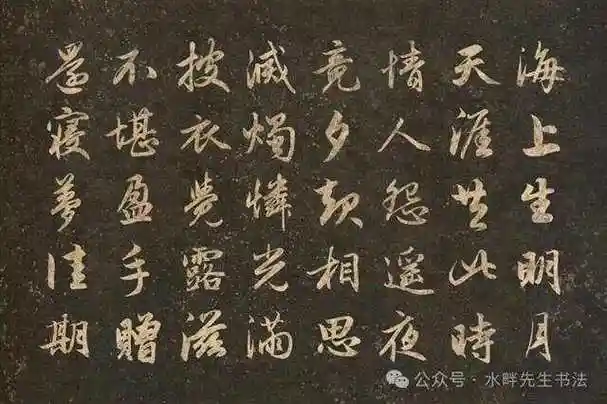 海上生明月
天涯共此時
情人怨遥夜
竟夕起相思
滅燭憐光滿
披衣覺露滋
不堪盈手贈
還寝夢佳期
公众号·水畔先生书法